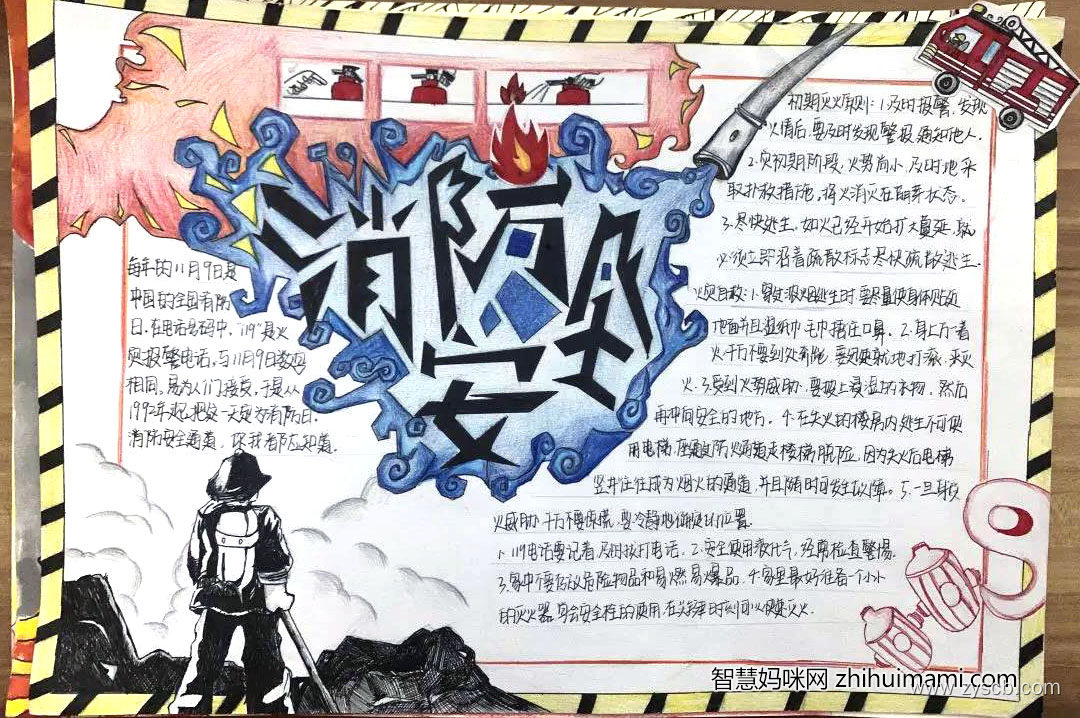 消防安全
每年的11月9日是
中国的全国消防
日.在电话号码中,"119"是火
灾报警电话,与11月9日数码
相同,易为人们接受,于是从
1992年起,把这一天定为消防日.
消防安全通道,你我都应知道.
初期灭火原则:1.及时报警,发现
火情后,要及时发现警报通知他人.
2.灾初期阶段,火势尚小,及时地采
取扑救措施,将火消灭在萌芽状态.
3.尽快逃生,如火已经开始扩大蔓延,就
必须立即沿着疏散标志尽快疏散逃生.
火灾自救:1.穿过浓烟逃生时,要尽量使身体贴近
地面并且湿纸巾毛巾捂住口鼻.2.身上万一着
火,千万不要到处奔跑,要迅速就地打滚,灭
火.3.受到火势威胁,要披上浸湿的衣物,然后
再冲向安全的地方.4.在失火的楼房内逃生不可使
用电梯,应通过防火通道走楼梯脱险,因为失火后电梯
竖井往往成为烟火的通道,并且随时间发生故障。5.一旦身受
火威胁,千万不要惊慌,要冷静地
1.119电话要记者,及时拨打电话.2.安全使用液化气,经常检查警惕.
3.家中不要存放危险物品和易燃易爆品.4.家里最好准备一个小小
的灭火器,学会安全栓的使用,在关键时刻可以快速灭火.
智慧妈咪网 zhihuimami.com
www.zyscb.com